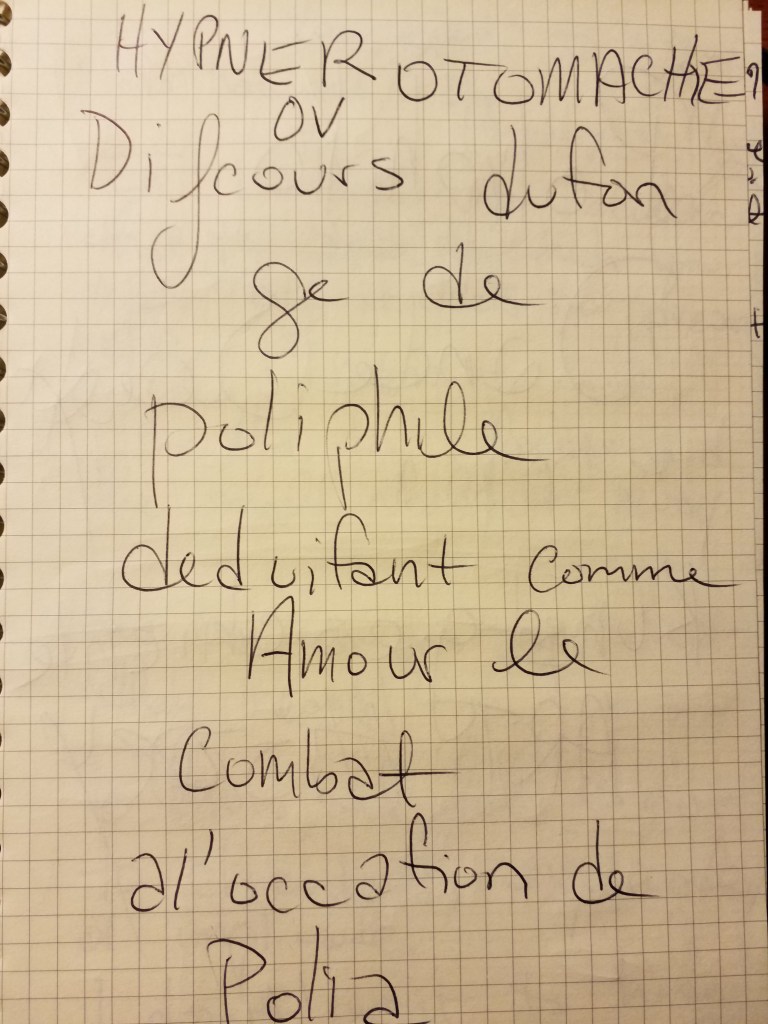 HYPNEROTOMACHIE
OV
Difcours dufon
ge de
poliphile
deduifant comme
Amour le
Combat
al'occafion de
Polia